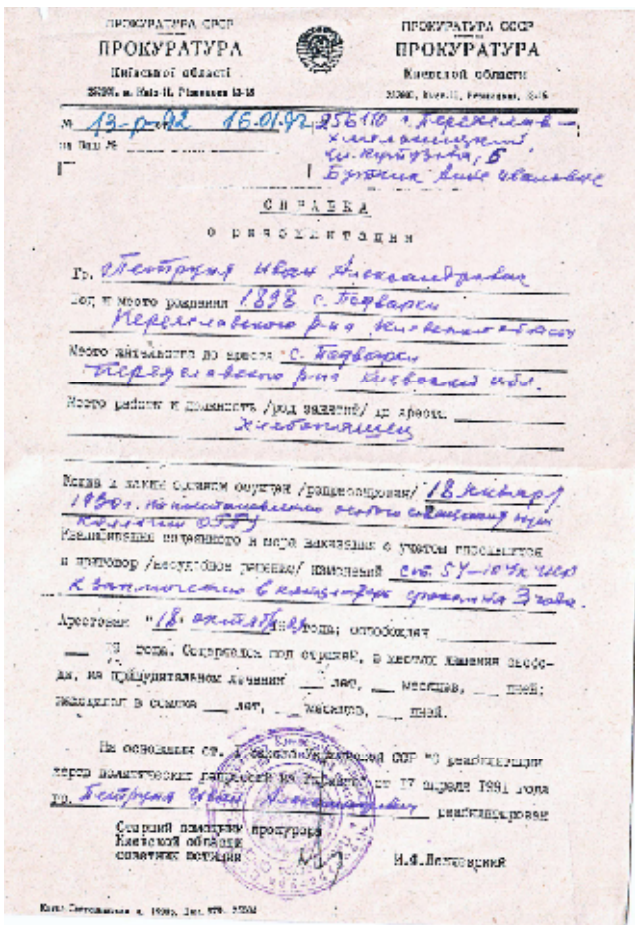 ПРОКУРАТУРА СРСР
ПРОКУРАТУРА
Київської області
ПРОКУРАТУРА СССР
ПРОКУРАТУРА
Киевской области
№ 13-р-92 16.01.92
на Ваш №
256110 г. Переяслав-
Хмельницкий
ул. Кутузова, 6
Анне Ивановне
СПРАВКА
о реабилитации
Гр. Петруня Иван Александрович
Год и место рождения 1898 с. Подварки
Переяславского р-на Киевской области
Место жительства до ареста с. Подварки
Переяславского р-на Киевской обл.
Место работы и должность /род занятий/ до ареста
хлебопашец
Когда и каким органом осужден /репрессирован/ 18 января
1930г. по постановлению особого совещания при
коллегии ОГПУ
Квалификация содеянного и мера наказания с учетом
и приговор /несудебное решение/ изменений ст. 54-10 УК УССР
к заключению в концлагерь сроком на 3 года.
Арестован "18" октября года; освобожден
19 года. Содержался под стражей, в местах лишения свобо-
ды, на принудительном лечении лет, месяцев, дней;
находился в ссылке лет, месяцев, дней.
На основании ст. 1 Закона Украинской ССР "О реабилитации
жертв политических репрессий на Украине" от 17 апреля 1991 года
гр. Петруня Иван Александрович реабилитирован
Старший помощник прокурора
Киевской области
советник юстиции